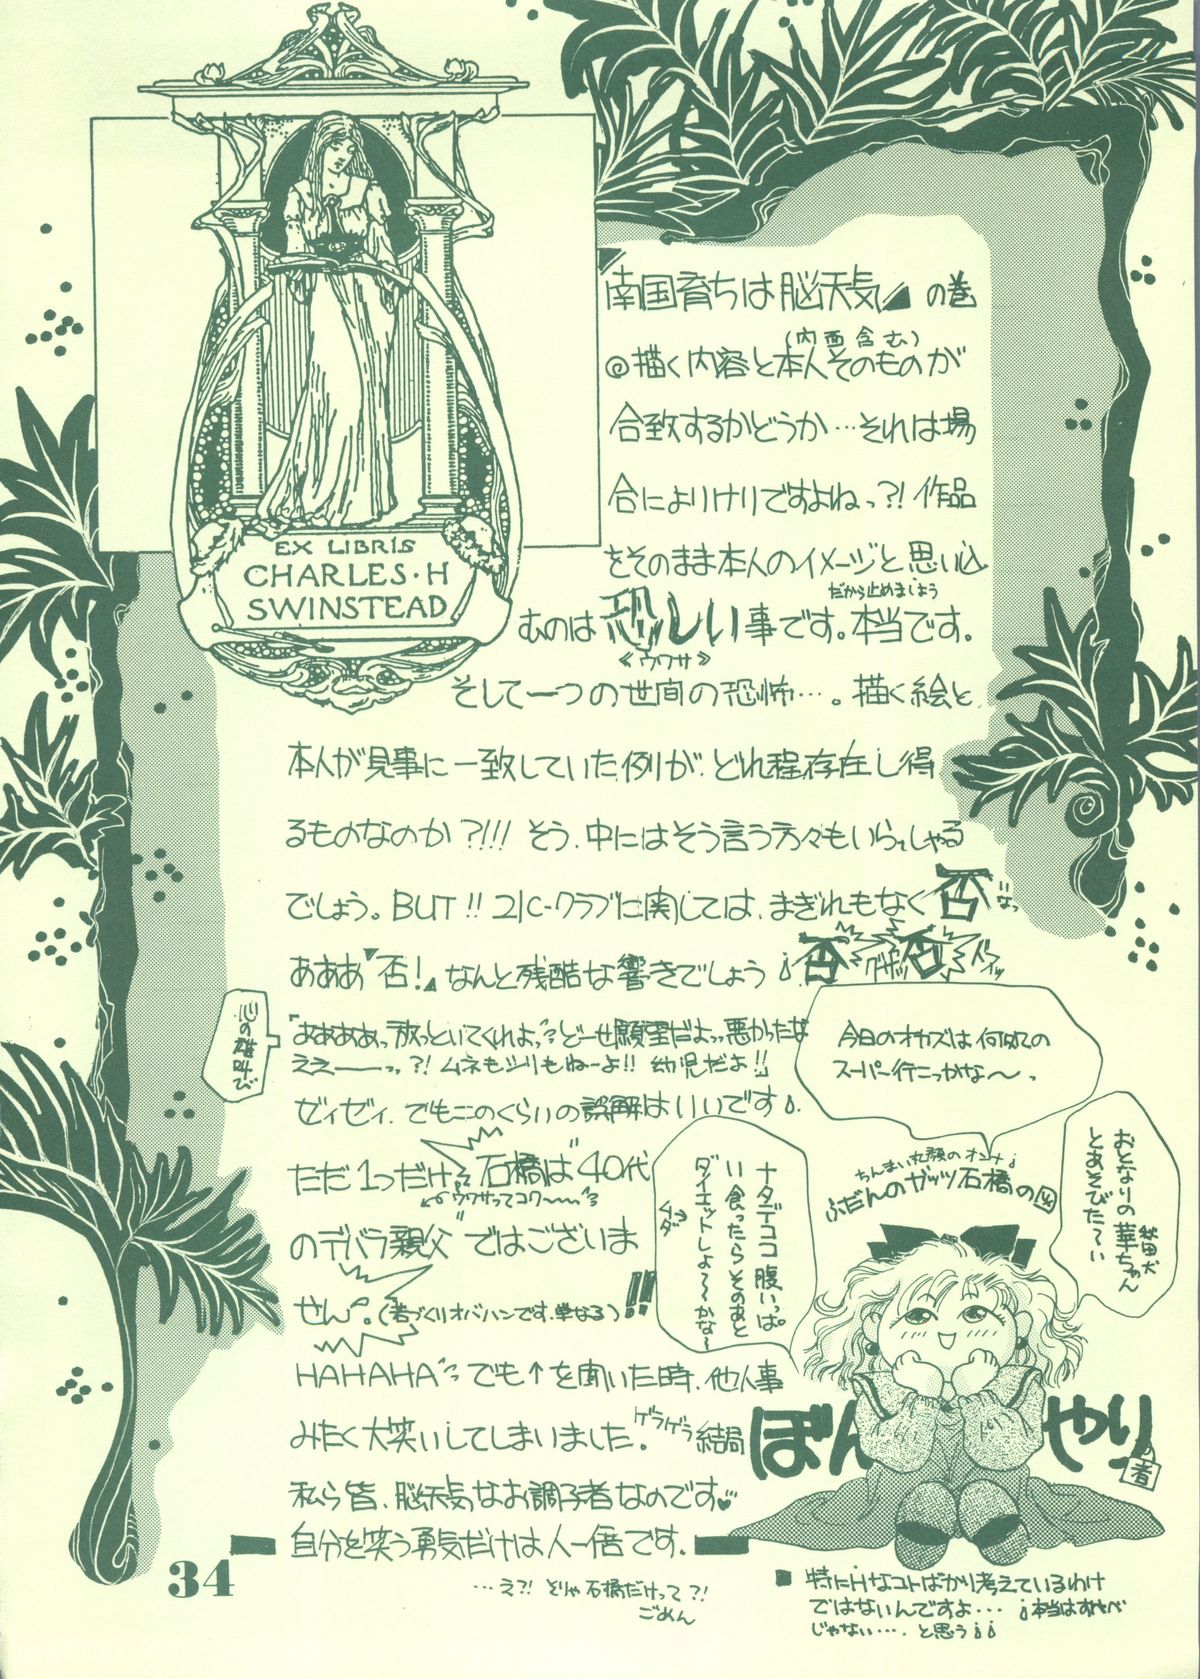 EX LIBRIS
CHARLES・H
SWINSTEAD
「南国育ちは脳天気」の巻
(内面含む)
◎描く内容と本人そのものが
合致するかどうか…それは場
合によりけりですよねっ?!作品
をそのまま本人のイメージと思い込
だから止めましょう
むのは恐しい事です。本当です。
《ウワサ》
そして一つの世間の恐怖…。描く絵と
本人が見事に一致していた例が、どれ程存在し得
るものなのか?!!! そう、中にはそう言う方々もいらっしゃる
でしょう。BUT!! 21C-クラブに関しては、まぎれもなく否
なっ
あああ「否!」なんと残酷な響きでしょう
否 グサッ 否
心の雄叫び
「ああああっ放っといてくれよっ どーせ願望だよっ悪かったな
ええーーっっ?! ムネもシリもねーよ!! 幼児だよ!!
ゼィゼィ、でもこのくらいの誤解はいいです
ただ1つだけ、石橋は"40代
ウワサってコワ〜〜い
のデバラ親父"ではございま
せん。(若づくりオバハンです、単なる)!!
HAHAHA でも↑を聞いた時、他人事
みたく大笑いしてしまいました。ゲラゲラ 結局
私ら皆、脳天気なお調子者なのです♥
自分を笑う勇気だけは人一倍です。
…え?! とりゃ石橋だけって?!
ごめん
34
今日のオカズは何処の
スーパー行こっかな〜っ
おとなりの華ちゃん
秋田犬
とあそびたーい
ナタデココ腹いっぱ
い食ったらそのあと
ダイエットしよ〜かな〜
ムダ
ちんまい丸顔のオンナ
ふだんのガッツ石橋の図
ぼんやり
の者
■特にHなコトばかり考えているわけ
ではないんですよ… 本当はすけべ
じゃない…。と思う